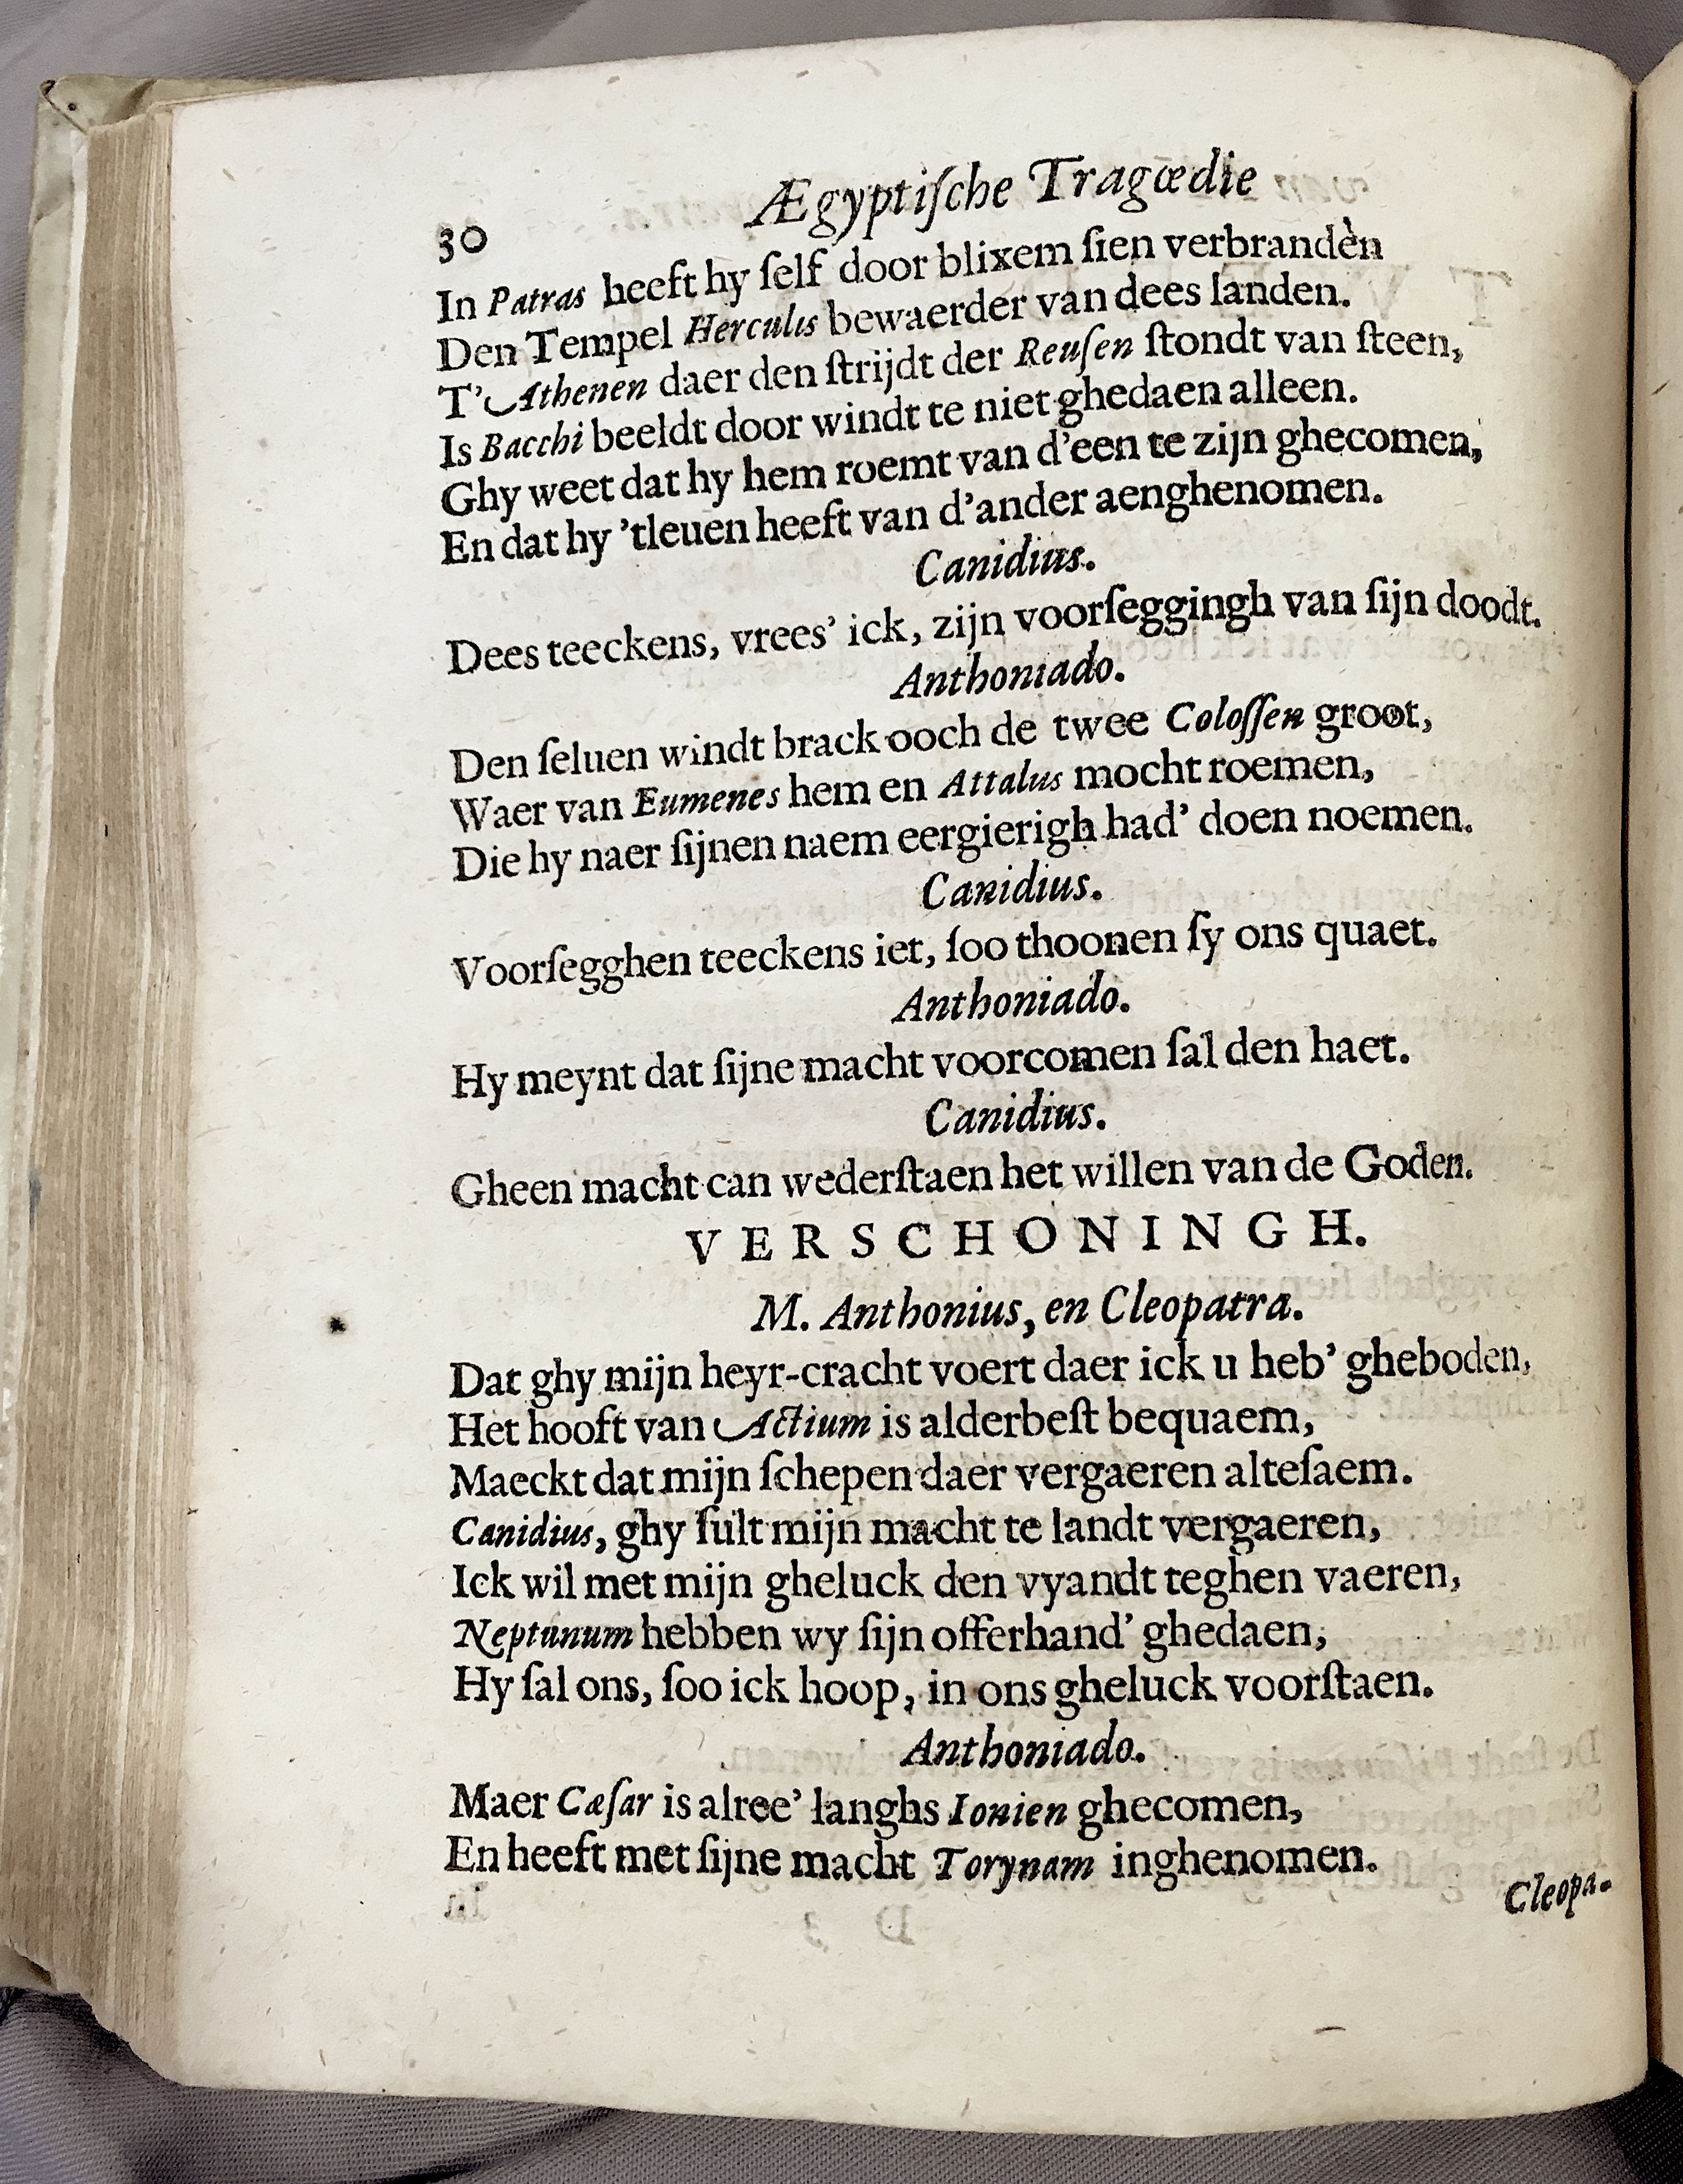 Ægyptiſche Tragœdie
30
In Patras heeft hy ſelf door blixem ſien verbrandèn
Den Tempel Herculis bewaerder van dees landen.
T'Athenen daer den ſtrijdt der Reuſen ſtondt van ſteen,
Is Bacchi beeldt door windt te niet ghedaen alleen.
Ghy weet dat hy hem roemt van d'een te zijn ghecomen,
En dat hy 'tleuen heeft van d'ander aenghenomen.
Canidius.
Dees teeckens, vrees' ick, zijn voorſeggingh van ſijn doodt.
Anthoniado.
Den ſeluen windt brack ooch de twee Coloſſen groot,
Waer van Eumenes hem en Attalus mocht roemen,
Die hy naer ſijnen naem eergierigh had' doen noemen.
Canidius.
Voorſegghen teeckens iet, ſoo thoonen ſy ons quaet.
Anthoniado.
Hy meynt dat ſijne macht voorcomen ſal den haet.
Canidius.
Gheen macht can wederſtaen het willen van de Goden.
VERSCHONINGH.
M. Anthonius, en Cleopatra.
Dat ghy mijn heyr-cracht voert daer ick u heb' gheboden,
Het hooft van Actium is alderbeſt bequaem,
Maeckt dat mijn ſchepen daer vergaeren alteſaem.
Canidius, ghy ſult mijn macht te landt vergaeren,
Ick wil met mijn gheluck den vyandt teghen vaeren,
Neptunum hebben wy ſijn offerhand' ghedaen,
Hy ſal ons, ſoo ick hoop, in ons gheluck voorſtaen.
Anthoniado.
Maer Cæſar is alree' langhs Ionien ghecomen,
En heeft met ſijne macht Torynam inghenomen.
Cleopa.